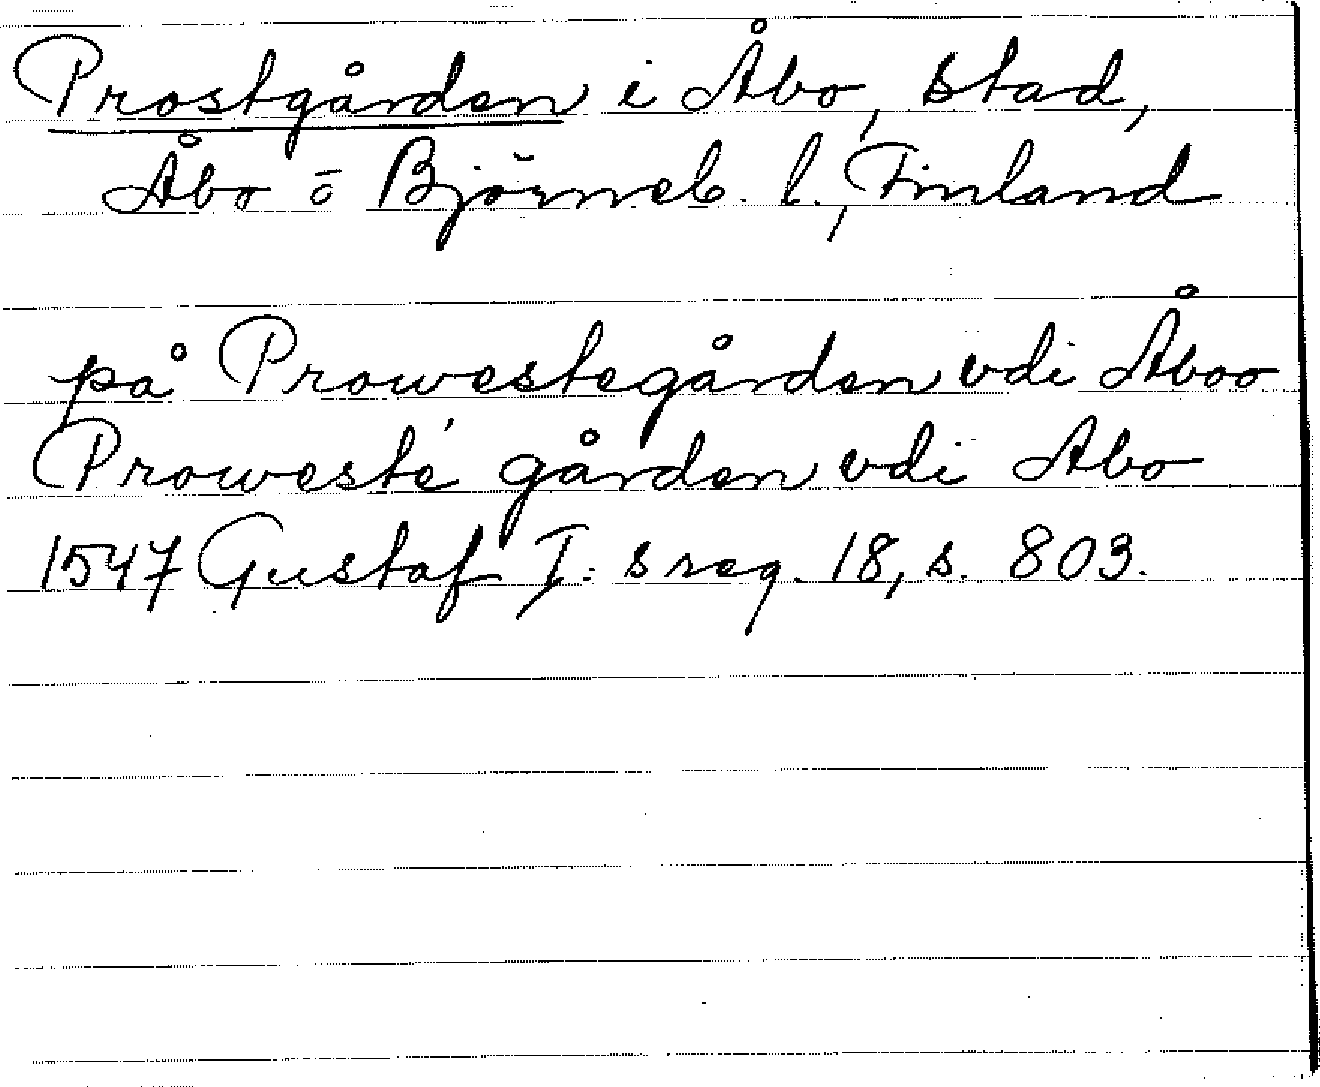 Prostgården i Åbo, stad,
Åbo o Björneb. l., Finland
på Prowestegården vdi Åboo
Prowesté gården vdi Abo
1547 Gustaf I:s reg. 18, s. 803.